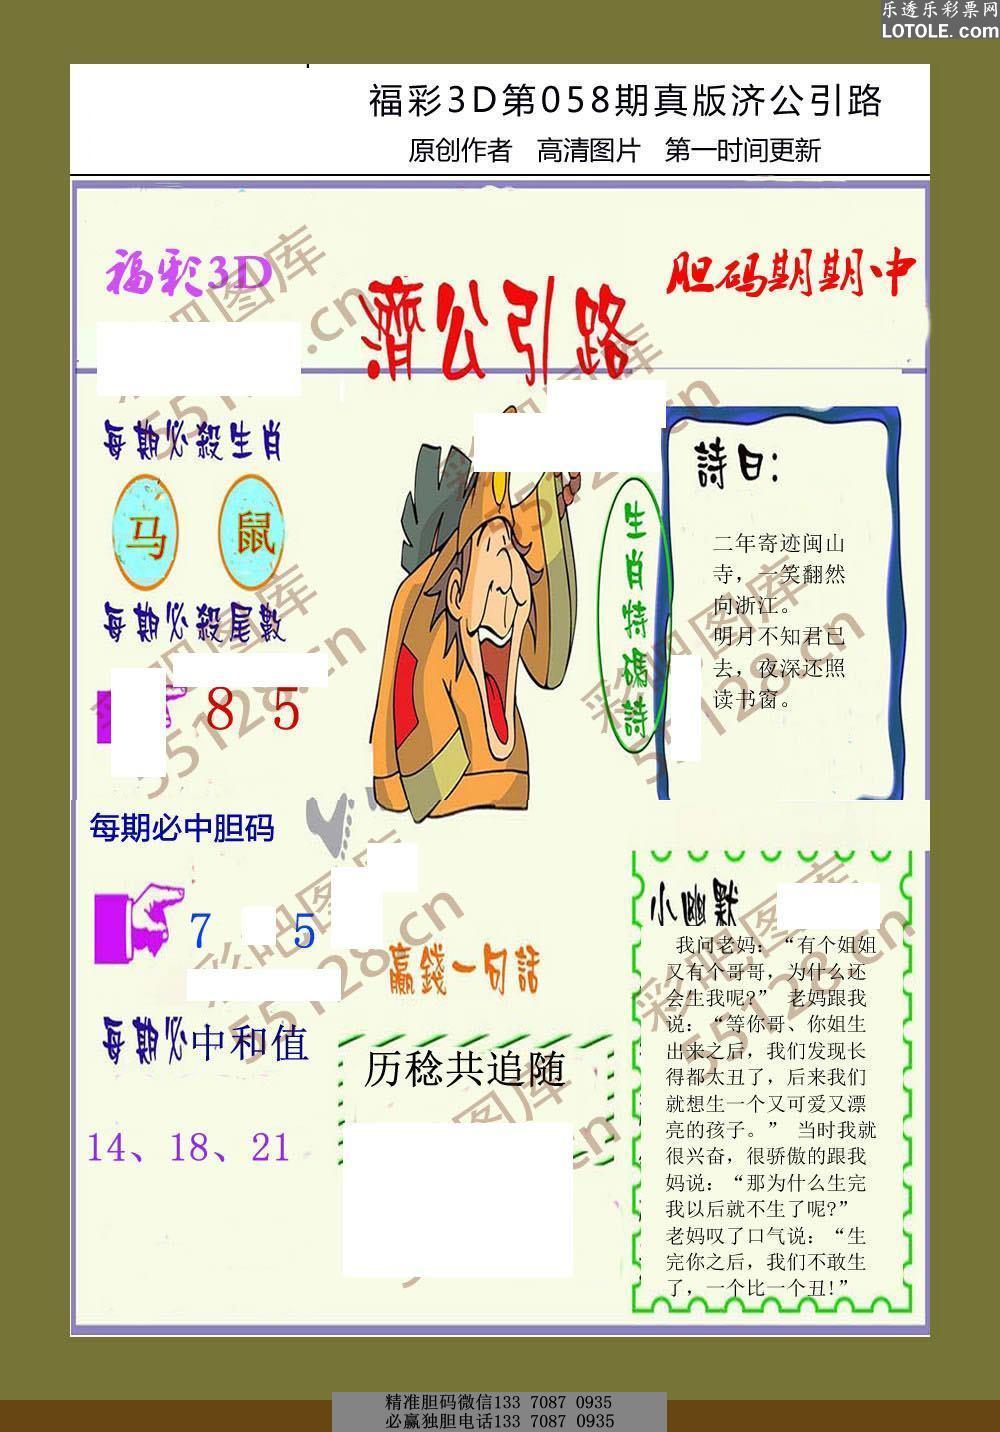 乐透乐彩票网
LOTOLE.com
福彩3D第058期真版济公引路
原创作者 高清图片 第一时间更新
福彩3D
濟公引路
胆码期期中
每期必殺生肖
马 鼠
每期必殺尾數
8 5
生肖特碼詩
詩曰:
二年寄迹闽山
寺，一笑翻然
向浙江。
明月不知君已
去，夜深还照
读书窗。
每期必中胆码
7 5
赢錢一句話
每期必中和值
14、18、21
历稔共追随
小幽默
我问老妈：“有个姐姐
又有个哥哥，为什么还
会生我呢?” 老妈跟我
说：“等你哥、你姐生
出来之后，我们发现长
得都太丑了，后来我们
就想生一个又可爱又漂
亮的孩子。” 当时我就
很兴奋，很骄傲的跟我
妈说：“那为什么生完
我以后就不生了呢?”
老妈叹了口气说：“生
完你之后，我们不敢生
了，一个比一个丑!”
彩吧图库
55128.cn
精准胆码微信133 7087 0935
必赢独胆电话133 7087 0935